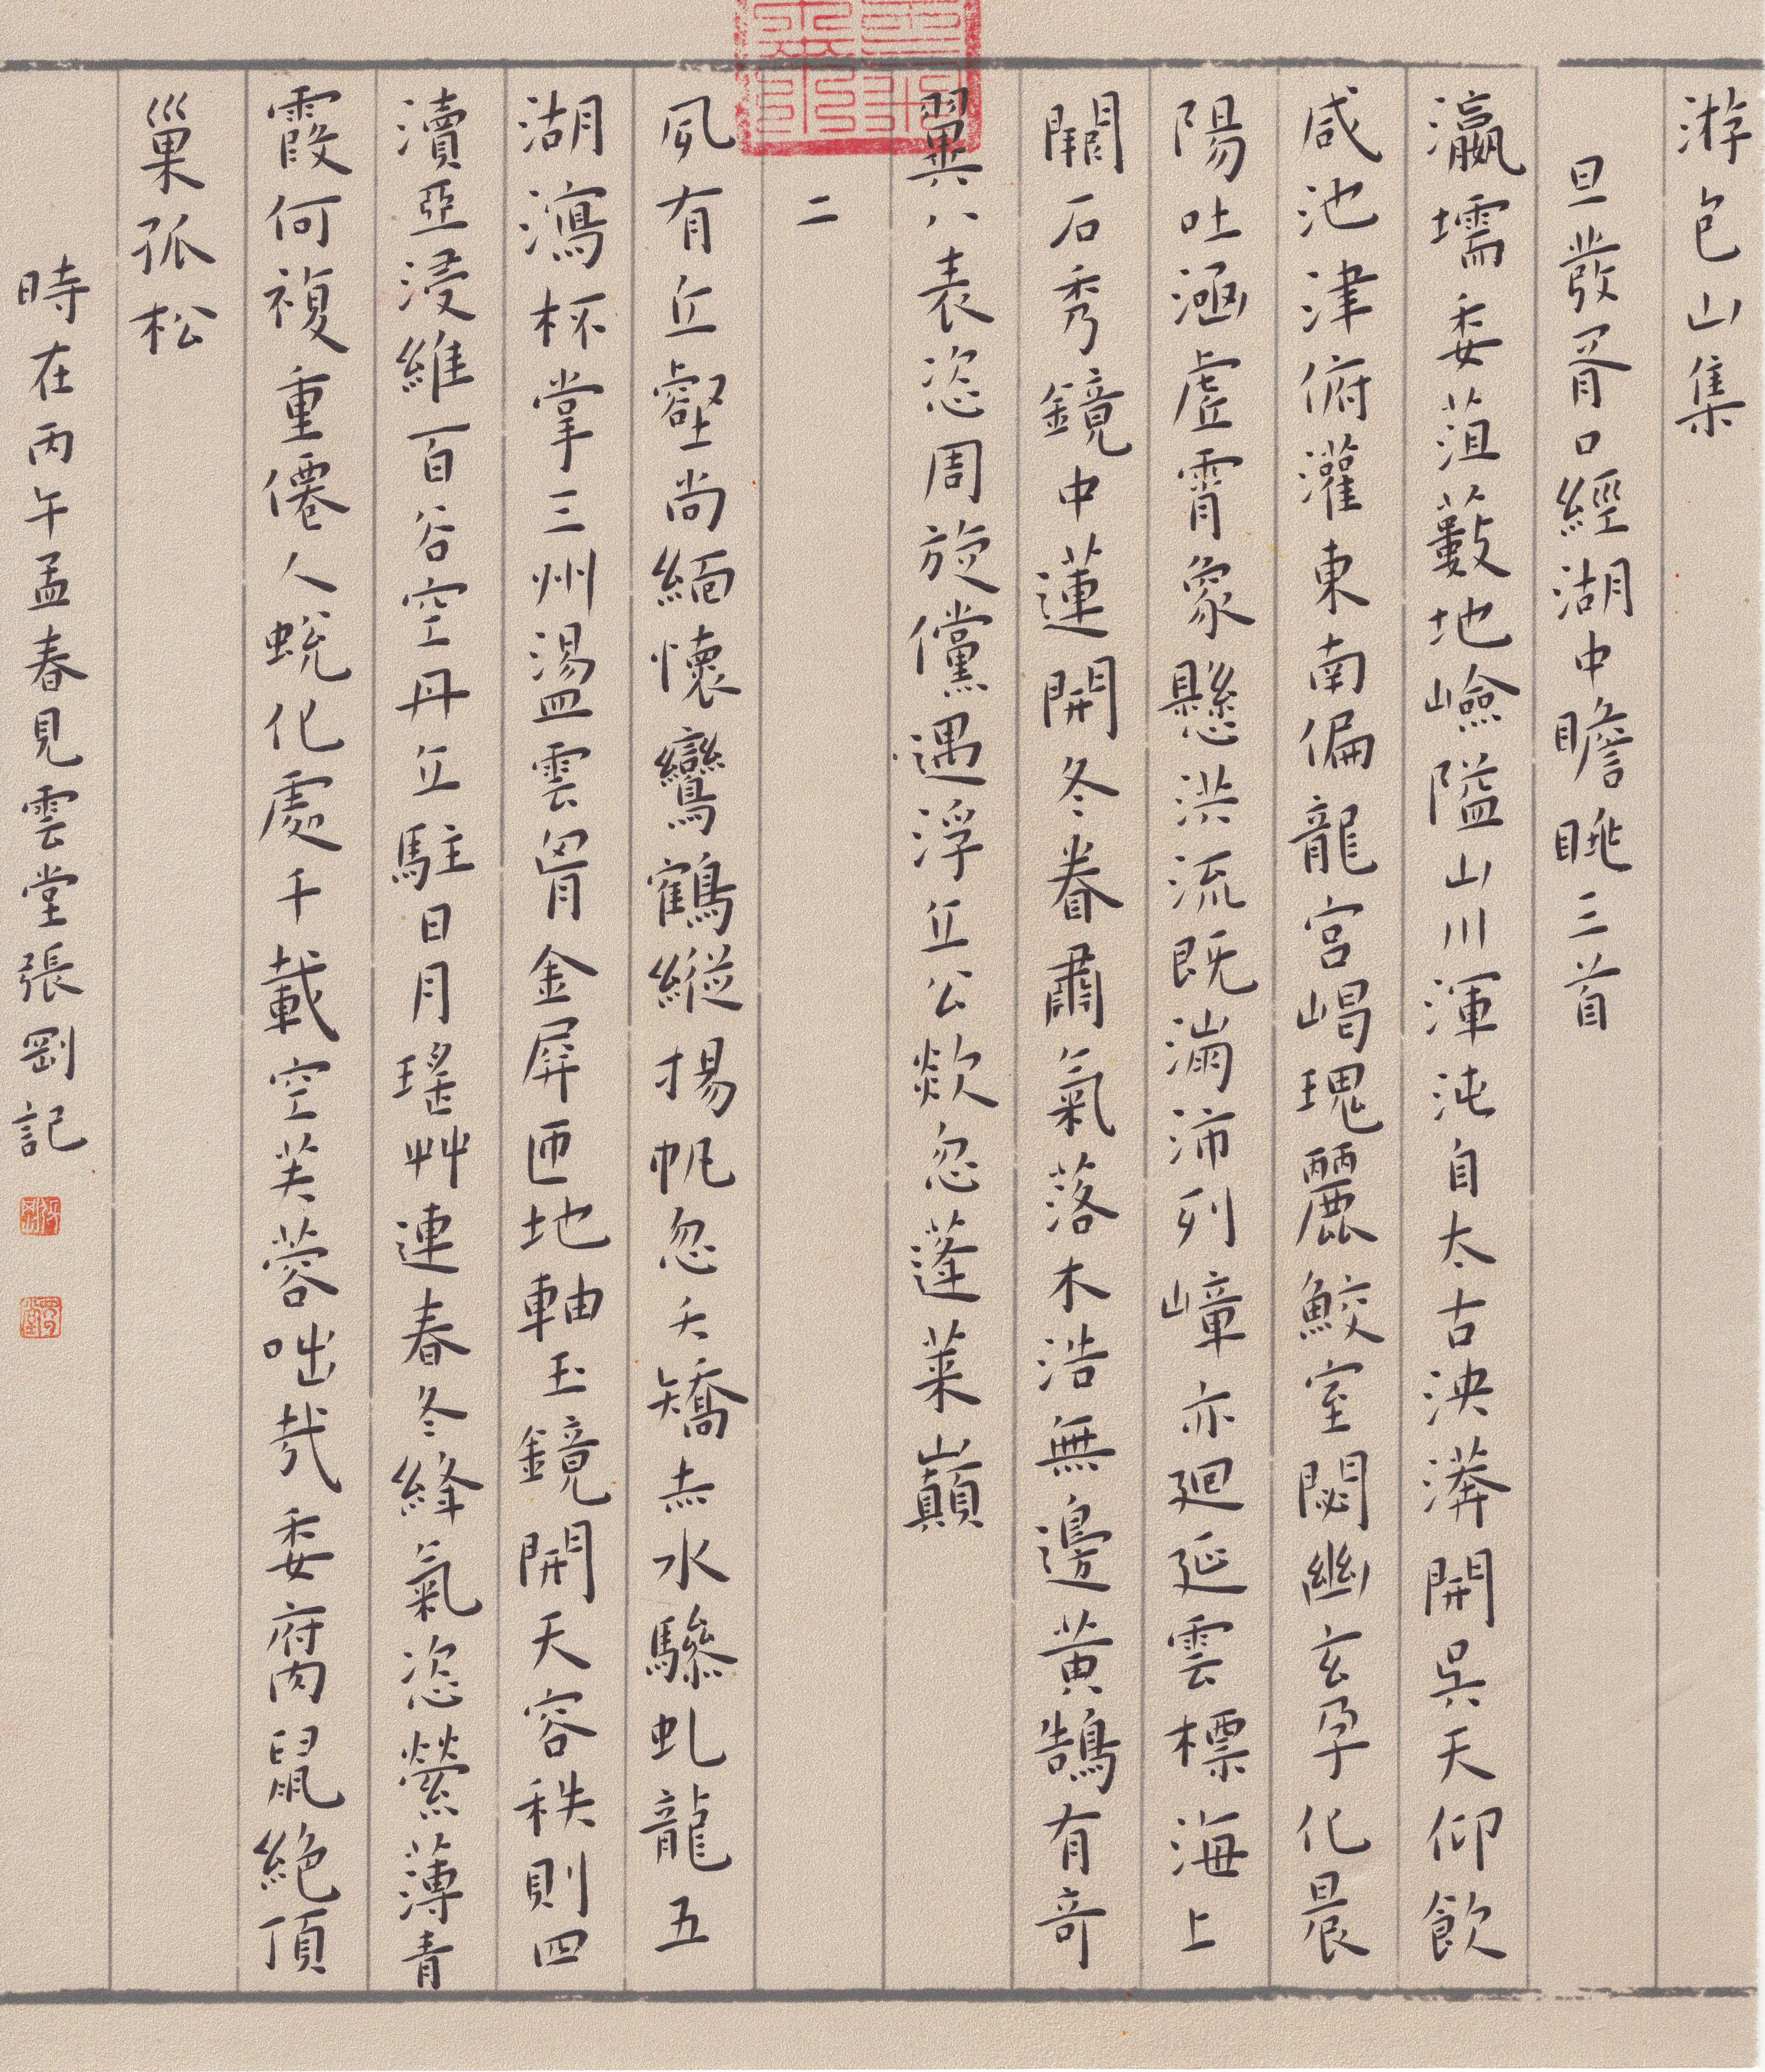 游包山集
旦發胥口經湖中瞻眺三首
瀛壖委菹藪地嶮隘山川渾沌自太古泱漭開吳天仰飲
咸池津俯灌東南偏龍宮崵瑰麗鮫室閟幽玄孕化晨
陽吐涵虛霄象懸洪流既滿沛列嶂亦迴延雲標海上
闕石秀鏡中蓮開冬眷肅氣落木浩無邊黃鵠有奇
翼八表恣周旋儻遇浮丘公欻忽蓬萊巔
二
夙有丘壑尚緬懷鸞鶴縱揚帆忽夭矯赤水驂虬龍五
湖瀉杯掌三州盪雲胷金屏匝地軸玉鏡開天容秩則四
瀆亞浸維百谷空丹丘駐日月瑤艸連春冬絳氣恣縈薄青
霞何複重僊人蛻化處千載空芙蓉咄哉委腐鼠絕頂
巢孤松
時在丙午孟春見雲堂張剛記